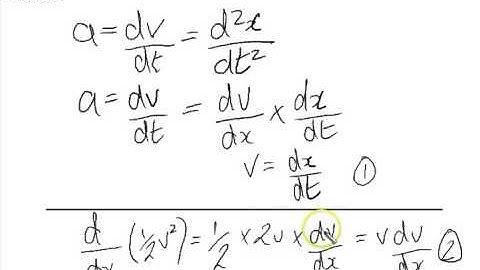 a = dv/dt = d²x/dt²
a = dv/dt = dv/dx × dx/dt
v = dx/dt ①
d/dx (½v²) = ½ × 2v × dv/dx = v dv/dx ②